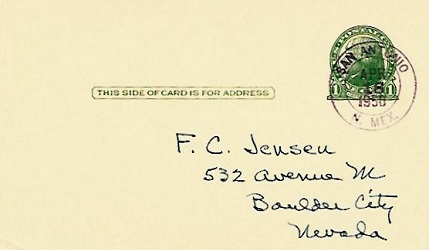 SAN ANTONIO
APR
18
1950
N. MEX.
1 1
THIS SIDE OF CARD IS FOR ADDRESS
F. C. Jensen
532 Avenue M
Boulder City
Nevada